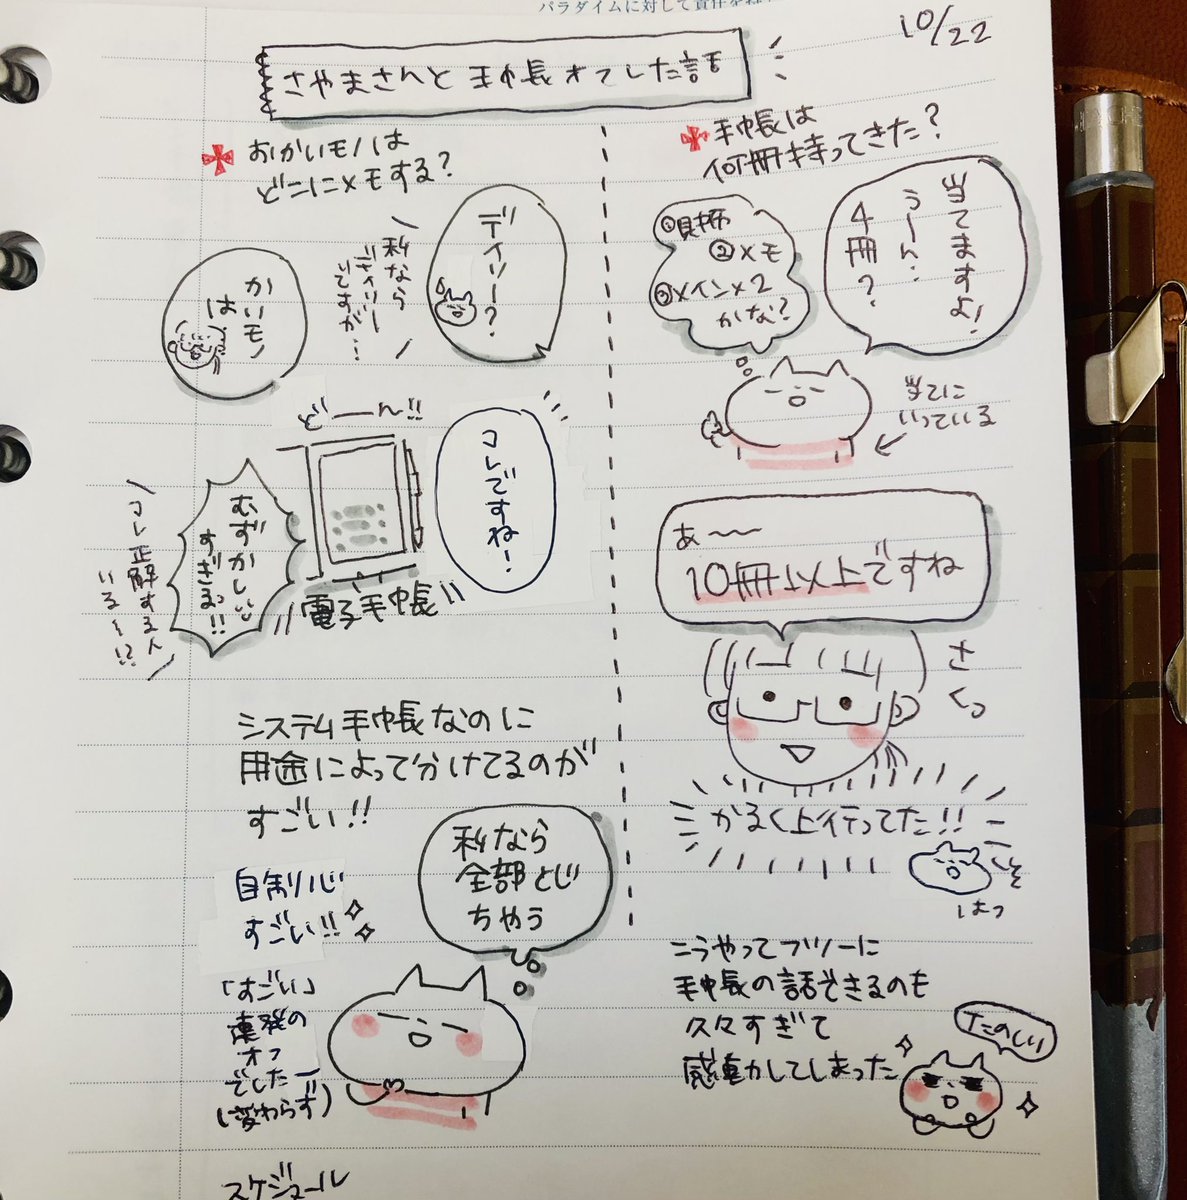 パラダイムに対して責任を
10/22
さやまさんと手帳オフした話
おかいモノは
どこにメモする？
デイリー？
私なら
デイリー
ですが…
かいモノ
は
どーーん!!
コレですね！
電子手帳
むずかしい
すぎるっ!!
コレ正解する人
いる〜!?
システム手帳なのに
用途によって分けてるのが
すごい!!
自制心
すごい!!
私なら
全部とじ
ちゃう
「すごい」
連発の
オフ
でしたー
(変わらず)
スケジュール
手帳は
何冊持ってきた？
当てますよ！
うーん…
4冊？
①財布
②メモ
③メイン×2
かな？
当てに
いっている
あ〜〜
10冊以上ですね
さくっ
かるく上行ってた!!
はっ
こうやってフツーに
手帳の話できるのも
久々すぎて
感動してしまった
たのしい